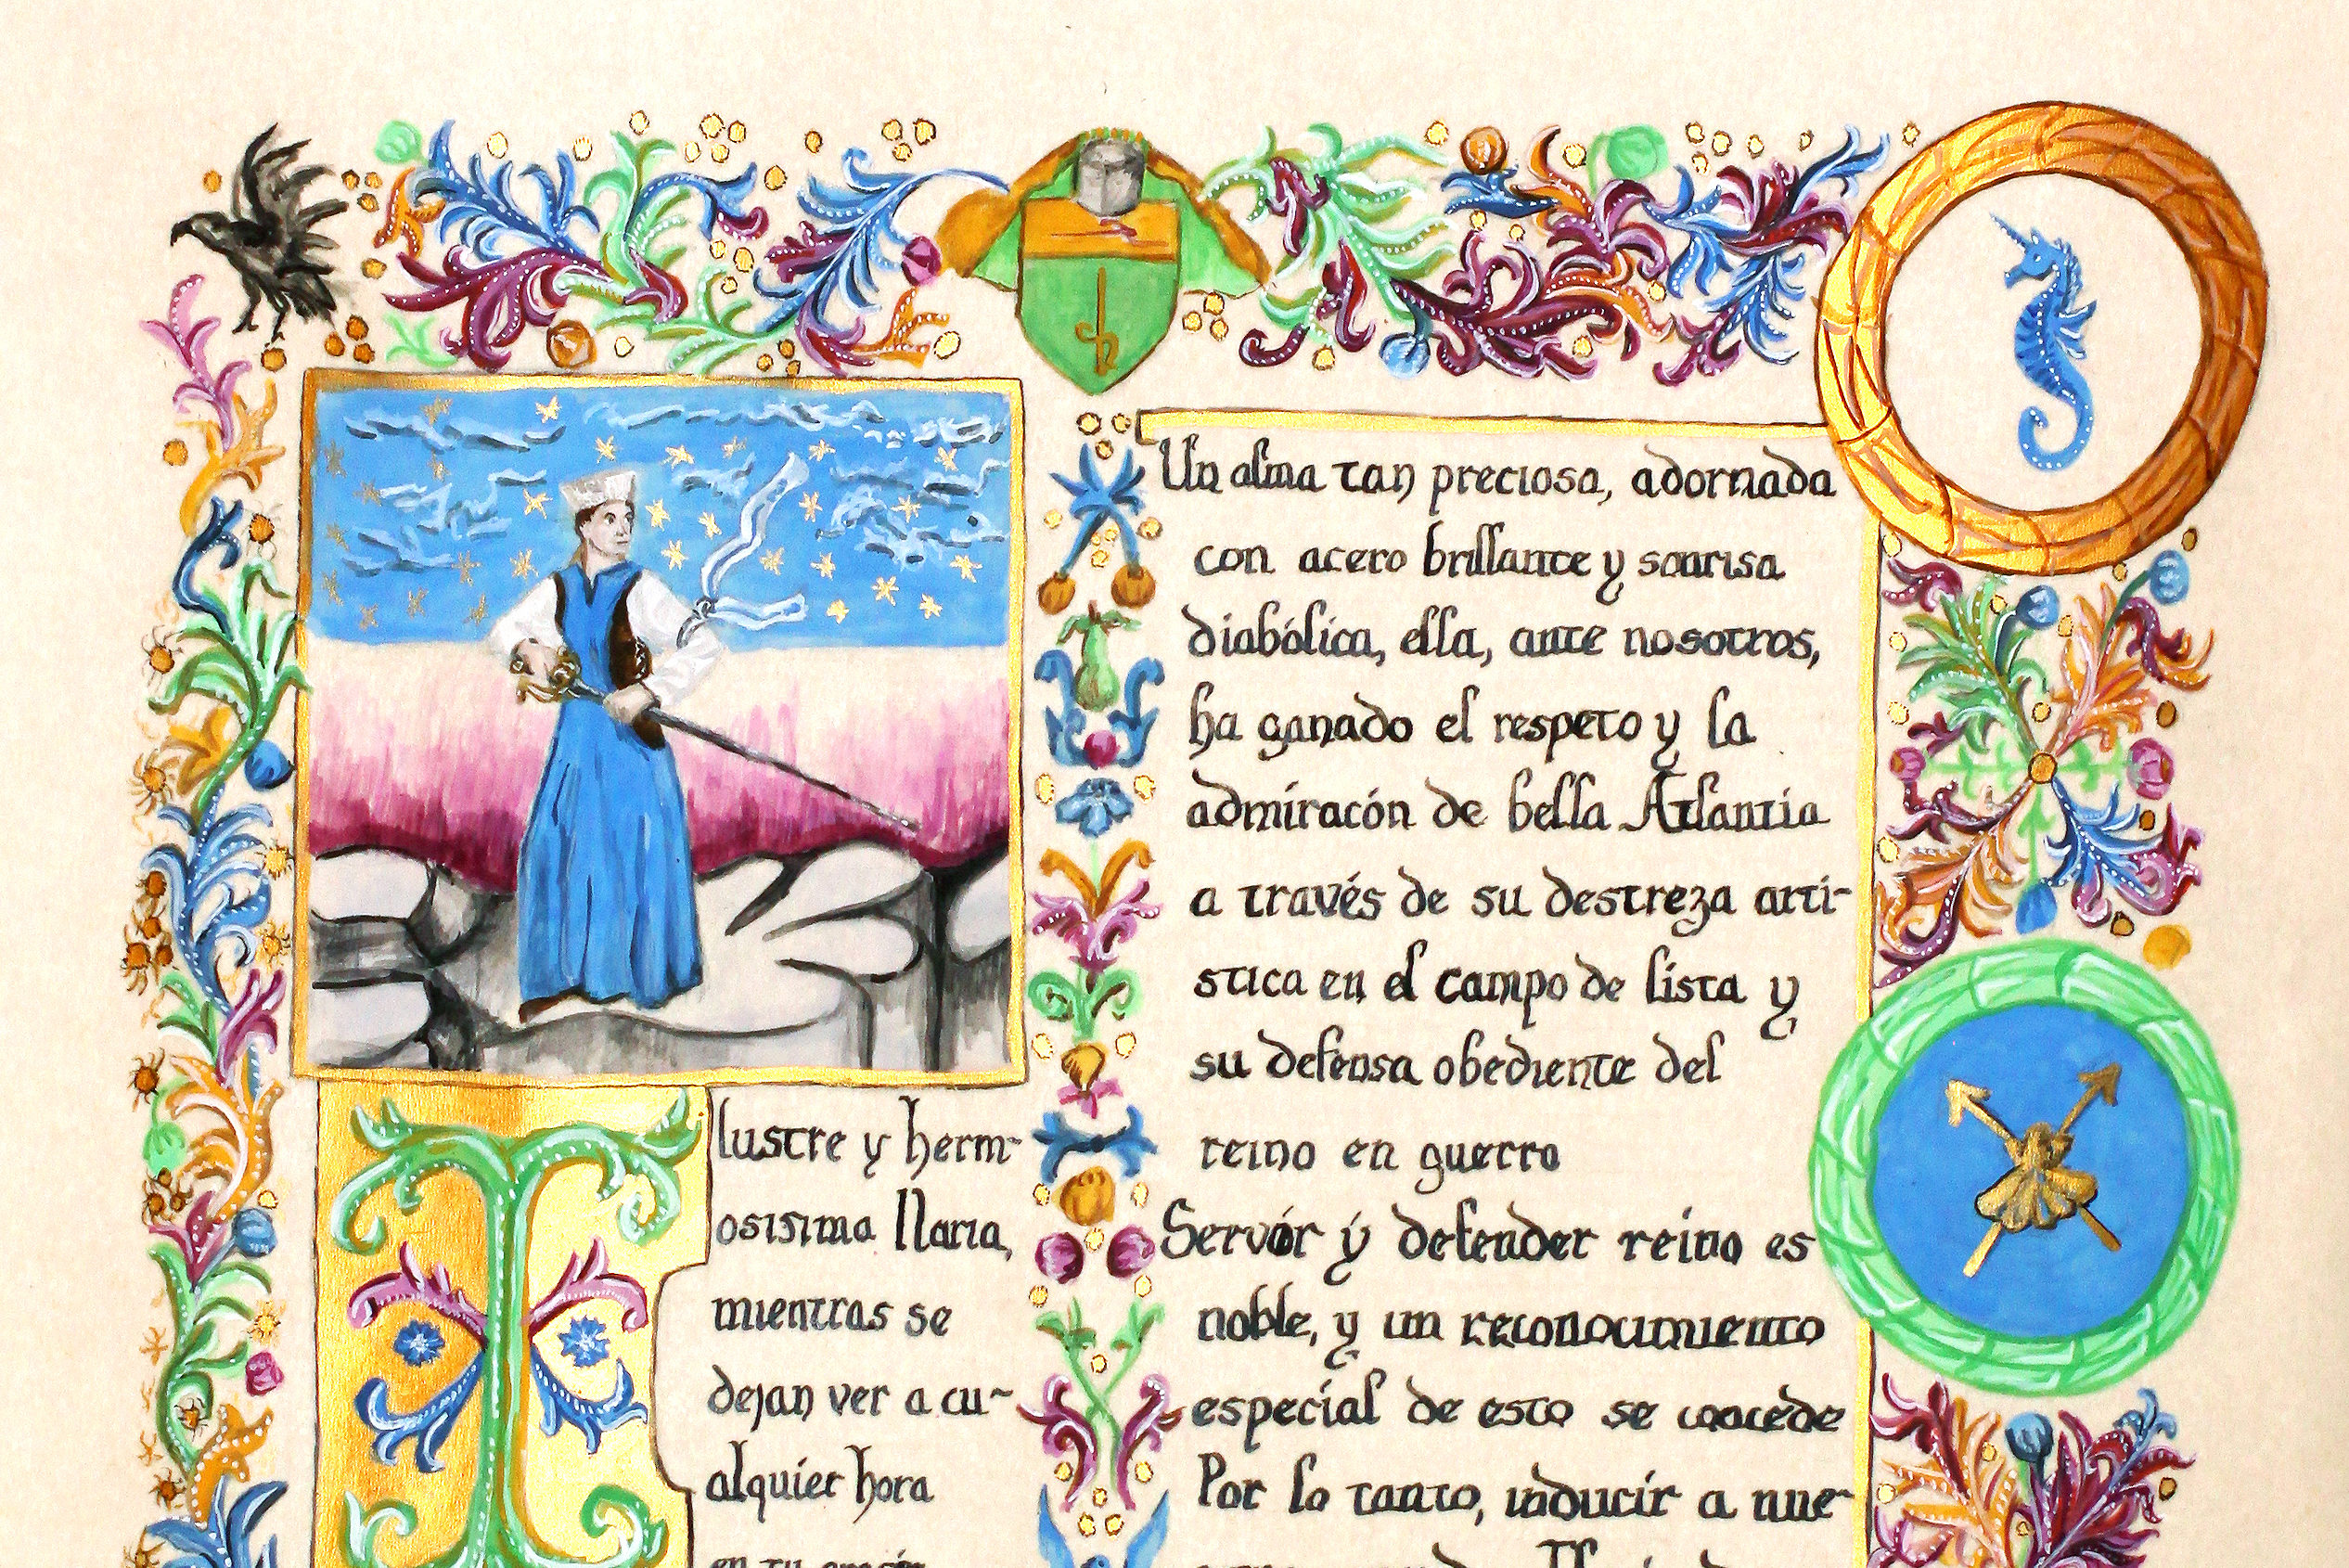 Ilustre y herm-
osisima Ilaria,
mientras se
dejan ver a cu-
alquier hora
Un alma tan preciosa, adornada
con acero brillante y sonrisa
diabólica, ella, ante nosotros,
ha ganado el respeto y la
admiracón de bella Atlantia
a través de su destreza arti-
stica en el campo de lista y
su defensa obediente del
reino en guerra
Servir y defender reino es
noble, y un reconocimiento
especial de esto se concede
Por lo tanto, inducir a nue-